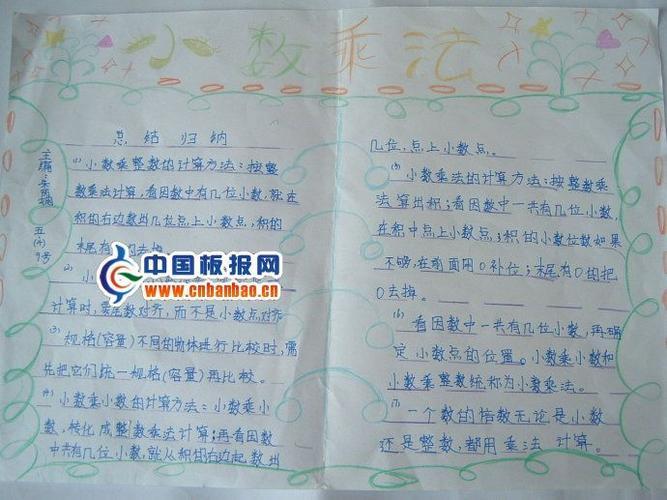 小数乘法
总结归纳
主编：
五(4) 9号
(1)小数乘整数的计算方法：按整
数乘法计算，看因数中有几位小数，就从
积的右边数出几位点上小数点，积的
末尾有 的去掉
中国板报网
www.cnbanbao.cn
(2) 小
计算时，要末数对齐，而不是小数点对齐
(3) 规格(容量)不同的物体进行比较时，需
先把它们统一规格(容量)再比较。
(4) 小数乘小数的计算方法：小数乘小
数，转化成整数乘法计算；再看因数
中共有几位小数，就从积的右边起数出
几位，点上小数点。
(5) 小数乘法的计算方法：按整数乘
法算出积；看因数中一共有几位小数，
在积中点上小数点；积的小数位数如果
不够，在前面用0补位；末尾有0的把
0去掉。
(6) 看因数中一共有几位小数，再确
定小数点的位置。小数乘小数和
小数乘整数统称为小数乘法。
(7) 一个数的倍数无论是小数
还是整数，都用乘法计算。